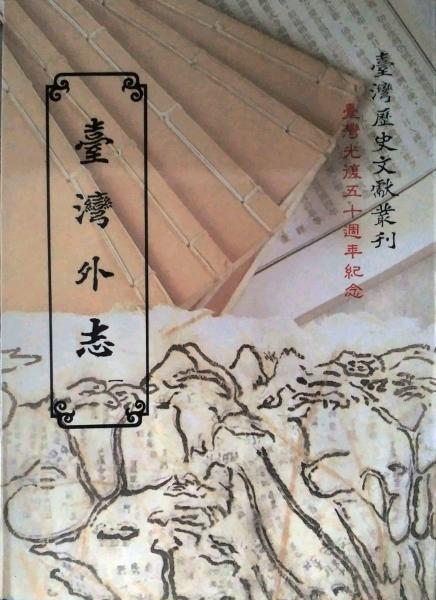 臺灣歷史文獻叢刊
臺灣光復五十週年紀念
臺灣外志